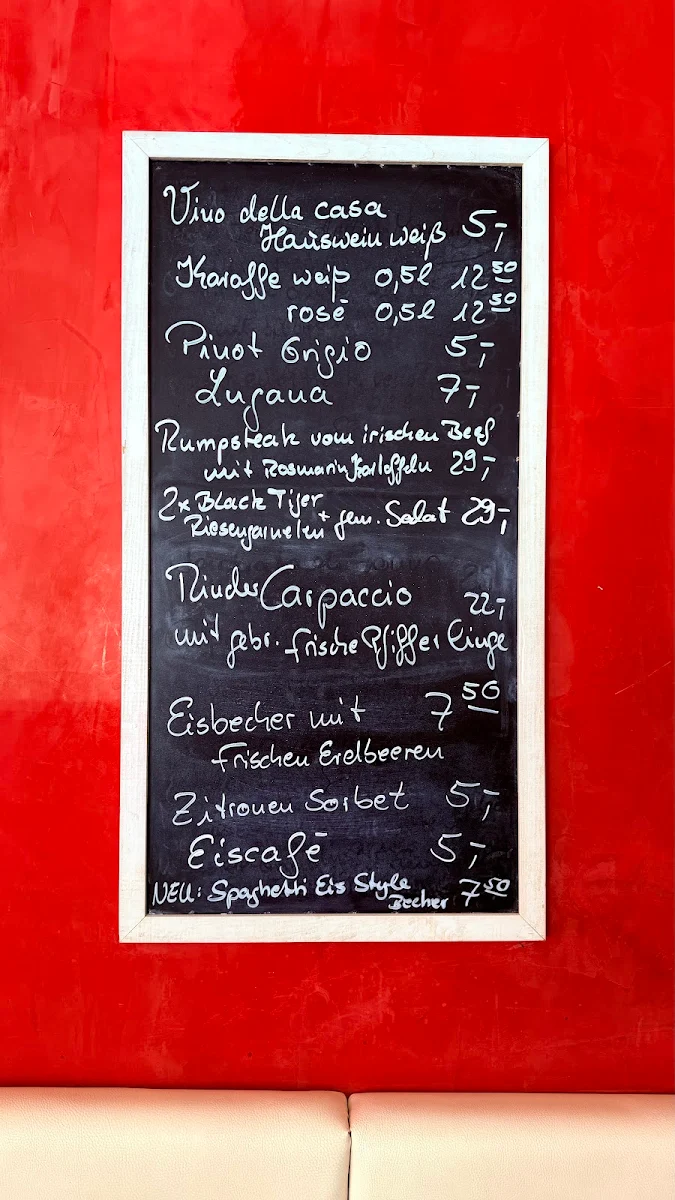 Vino della casa
Hauswein weiß 5,-
Karaffe weiß 0,5l 12 50
rosé 0,5l 12 50
Pinot Grigio 5,-
Lugana 7,-
Rumpsteak vom irischen Beef
mit Rosmarin Kartoffeln 29,-
2x Black Tiger
Riesengarnelen + gem. Salat 29,-
Rinder Carpaccio 22,-
mit gebr. frische Pfifferlinge
Eisbecher mit 7 50
frischen Erdbeeren
Zitronen Sorbet 5,-
Eiscafé 5,-
NEU: Spaghetti Eis Style
Becher 7 50